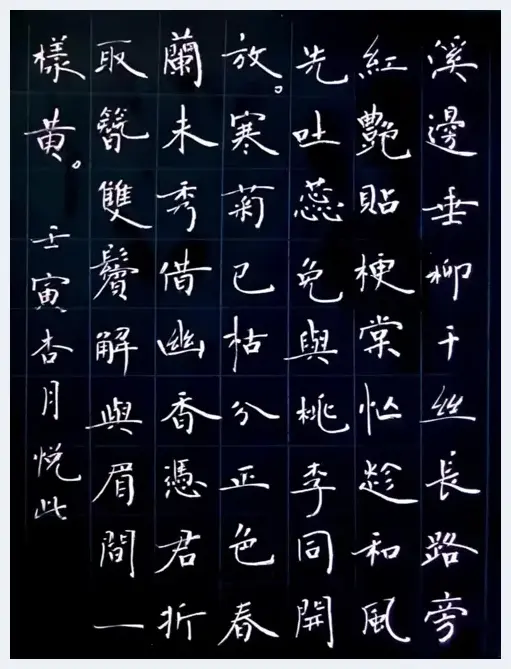 溪邊垂柳千絲長路旁
紅艷貼梗棠忙趁和風
先吐蕊免與桃李同開
放。寒菊已枯分正色春
蘭未秀借幽香憑君折
取簪雙鬢解與眉間一
樣黃。壬寅杏月悅此